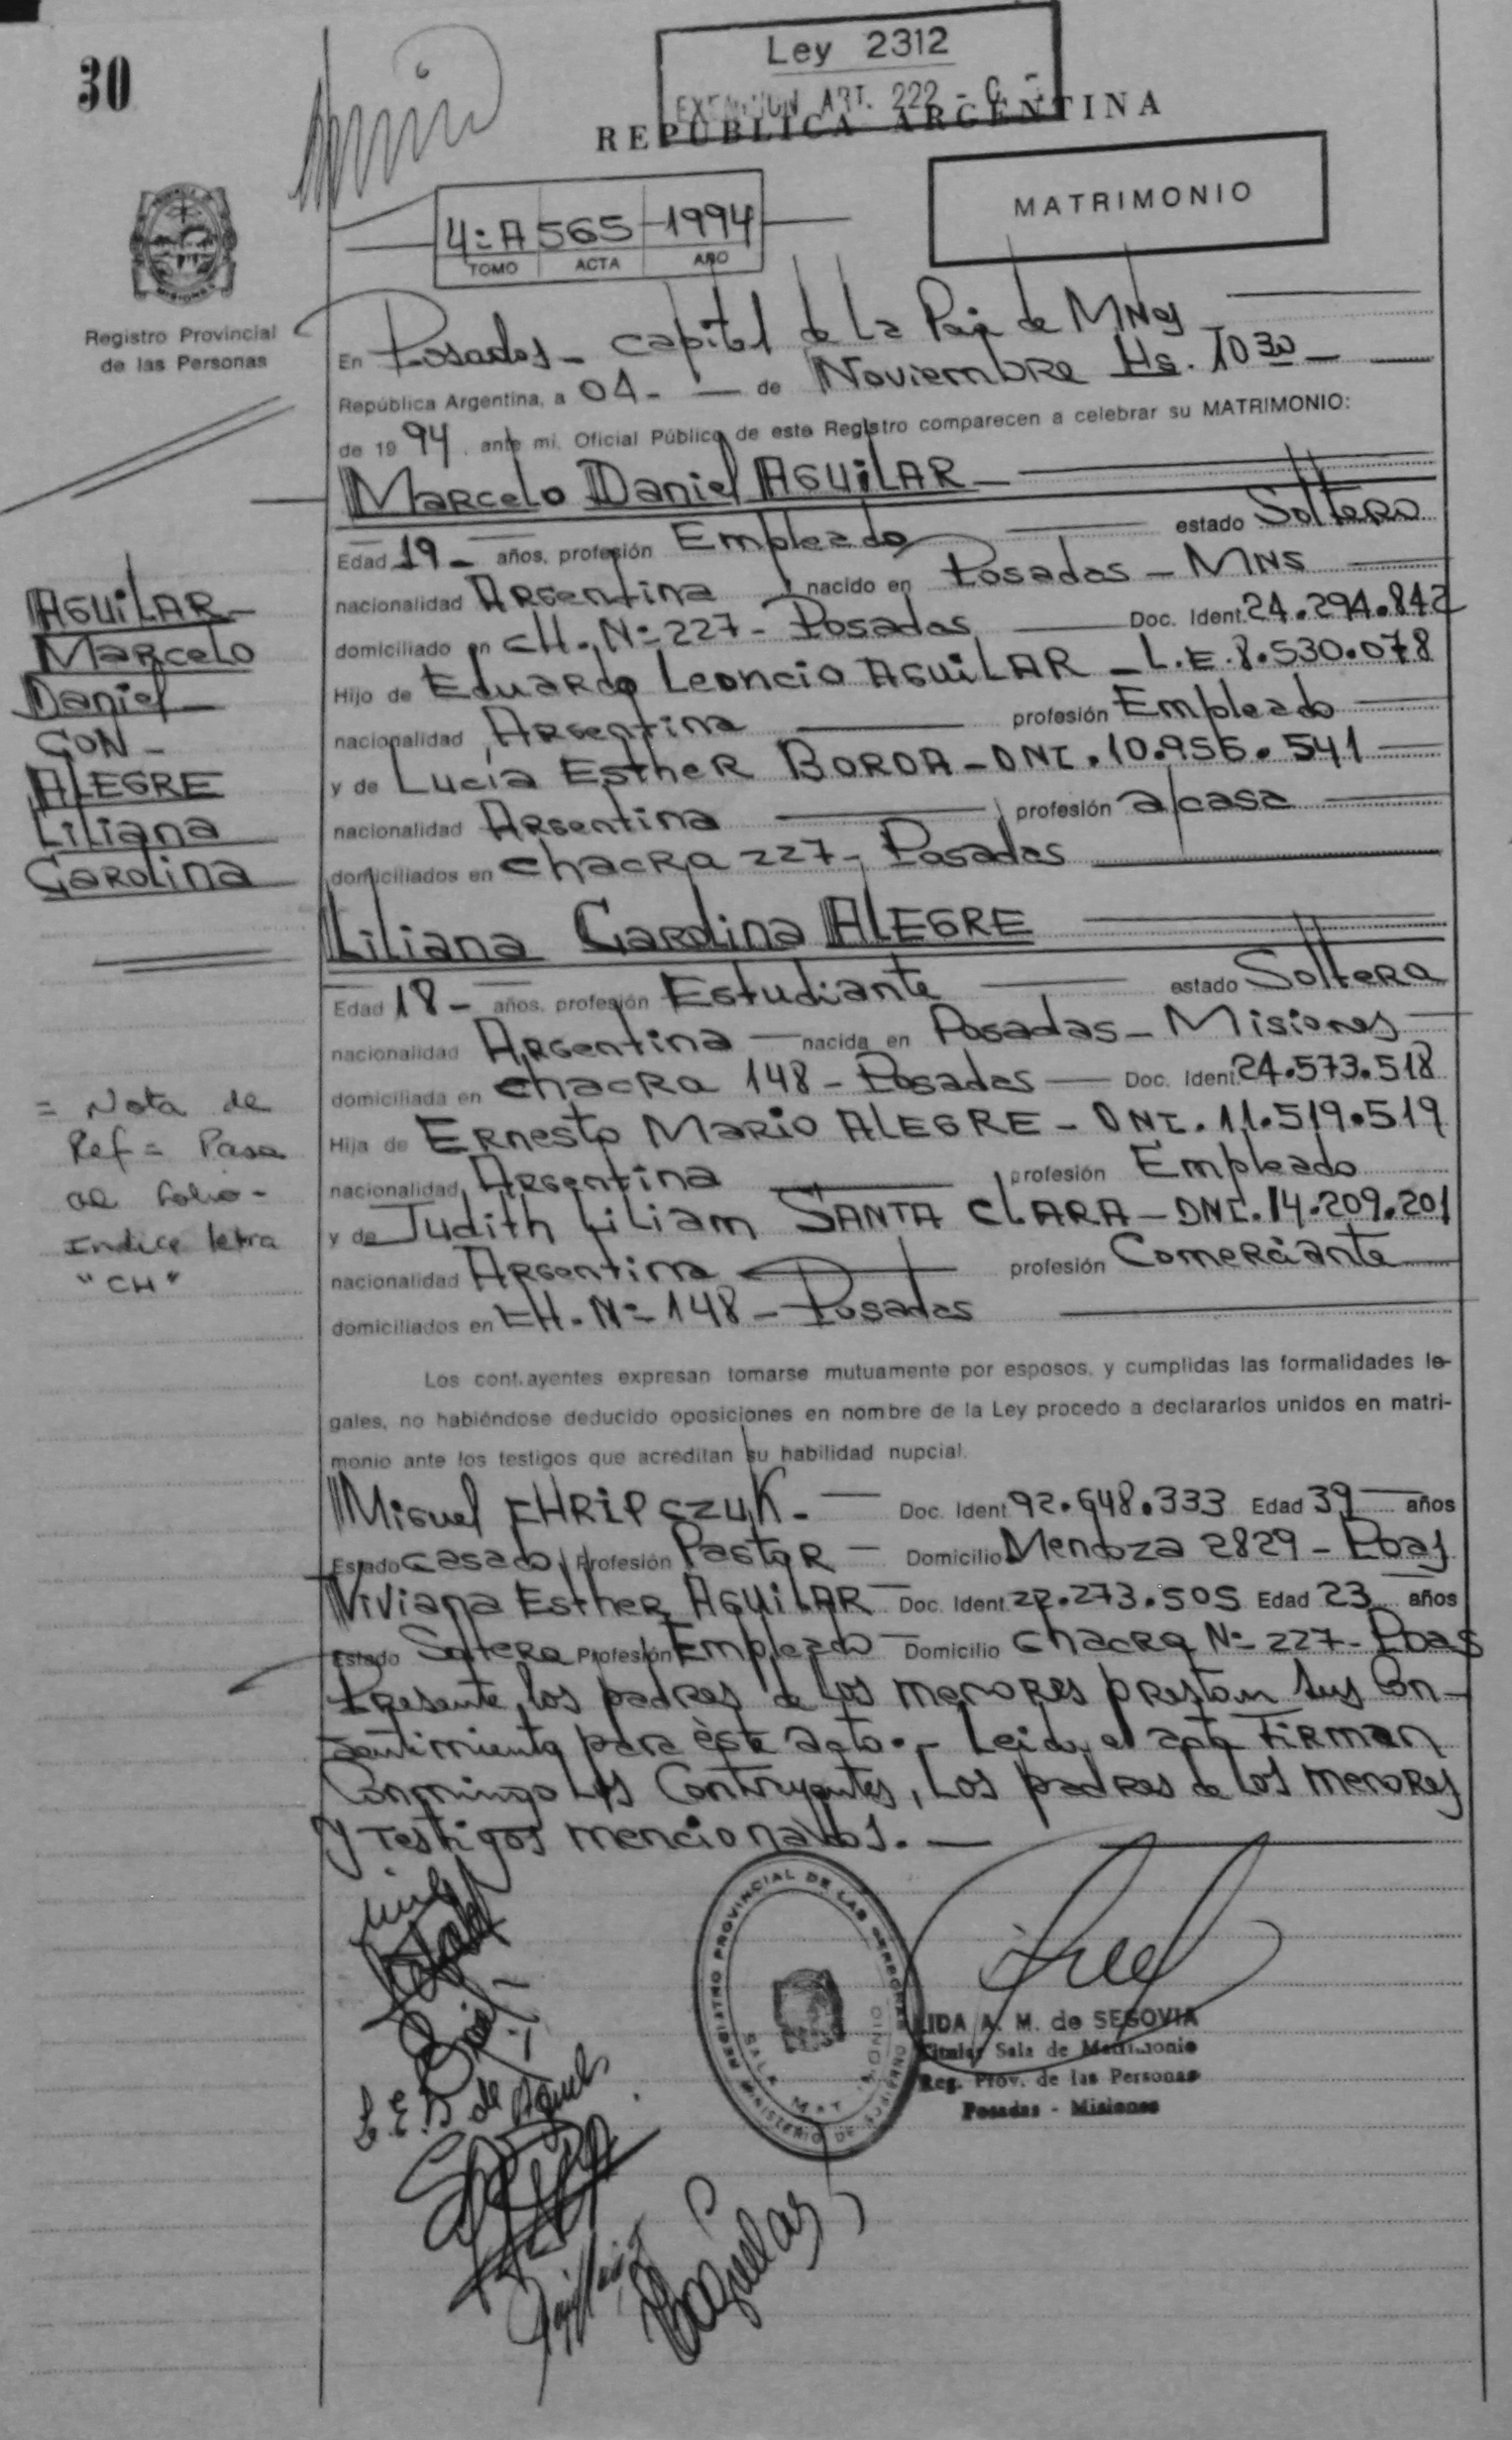 30
Ley 2312
EXENCION ART. 222 - C.
REPUBLICA ARGENTINA
MATRIMONIO
4=A 565 1994
TOMO ACTA AÑO
Registro Provincial
de las Personas
En Posadas - Capital de La de Mnes
República Argentina, a 04 - de Noviembre Hs. 10 30 -
de 19 94, ante mi, Oficial Público de este Registro comparecen a celebrar su MATRIMONIO:
Marcelo Daniel AGUILAR -
Edad 19 - años, profesión Empleado estado Soltero
nacionalidad Argentina nacido en Posadas - MNS
domiciliado en CH. Nº 227 - Posadas Doc. Ident. 24.294.842
Hijo de Eduardo Leoncio AGUILAR - L.E. 8.530.078
nacionalidad Argentina profesión Empleado
y de Lucía Esther BORDA - DNI. 10.956.541
nacionalidad Argentina profesión a/casa
domiciliados en Chacra 227 - Posadas
AGUILAR -
Marcelo
Daniel -
CON -
ALEGRE
Liliana
Carolina
Liliana Carolina ALEGRE
Edad 18 - años, profesión Estudiante estado Soltera
nacionalidad Argentina nacida en Posadas - Misiones
domiciliada en Chacra 148 - Posadas Doc. Ident. 24.573.518
Hija de Ernesto Mario ALEGRE - DNI. 11.519.519
nacionalidad Argentina profesión Empleado
y de Judith Liliam SANTA CLARA - DNI. 14.209.201
nacionalidad Argentina profesión Comerciante
domiciliados en CH. Nº 148 - Posadas
= Nota de
Ref = Pasa
al folio -
Indice letra
"CH"
Los contrayentes expresan tomarse mutuamente por esposos, y cumplidas las formalidades le-
gales, no habiéndose deducido oposiciones en nombre de la Ley procedo a declararlos unidos en matri-
monio ante los testigos que acreditan su habilidad nupcial.
Miguel CHRIPCZUK. - Doc. Ident 92.648.333 Edad 39 años
Estado Casado Profesión Pastor - Domicilio Mendoza 2829 - Pdas
Viviana Esther AGUILAR Doc. Ident. 22.273.505 Edad 23 años
Estado Soltera Profesión Empleado Domicilio Chacra Nº 227 - Pdas
Presente los padres de los menores prestan sus Con-
sentimiento para èste acto. - Leida el acta Firman
Conmingo los Contrayentes, Los padres de los menores
y testigos mencionados. -
REGISTRO PROVINCIAL DE LAS PERSONAS
SALA MATRIMONIO
MINISTERIO DE
L. E. B de Aguilar
LIDA A. M. de SEGOVIA
Titular Sala de Matrimonio
Reg. Prov. de las Personas
Posadas - Misiones